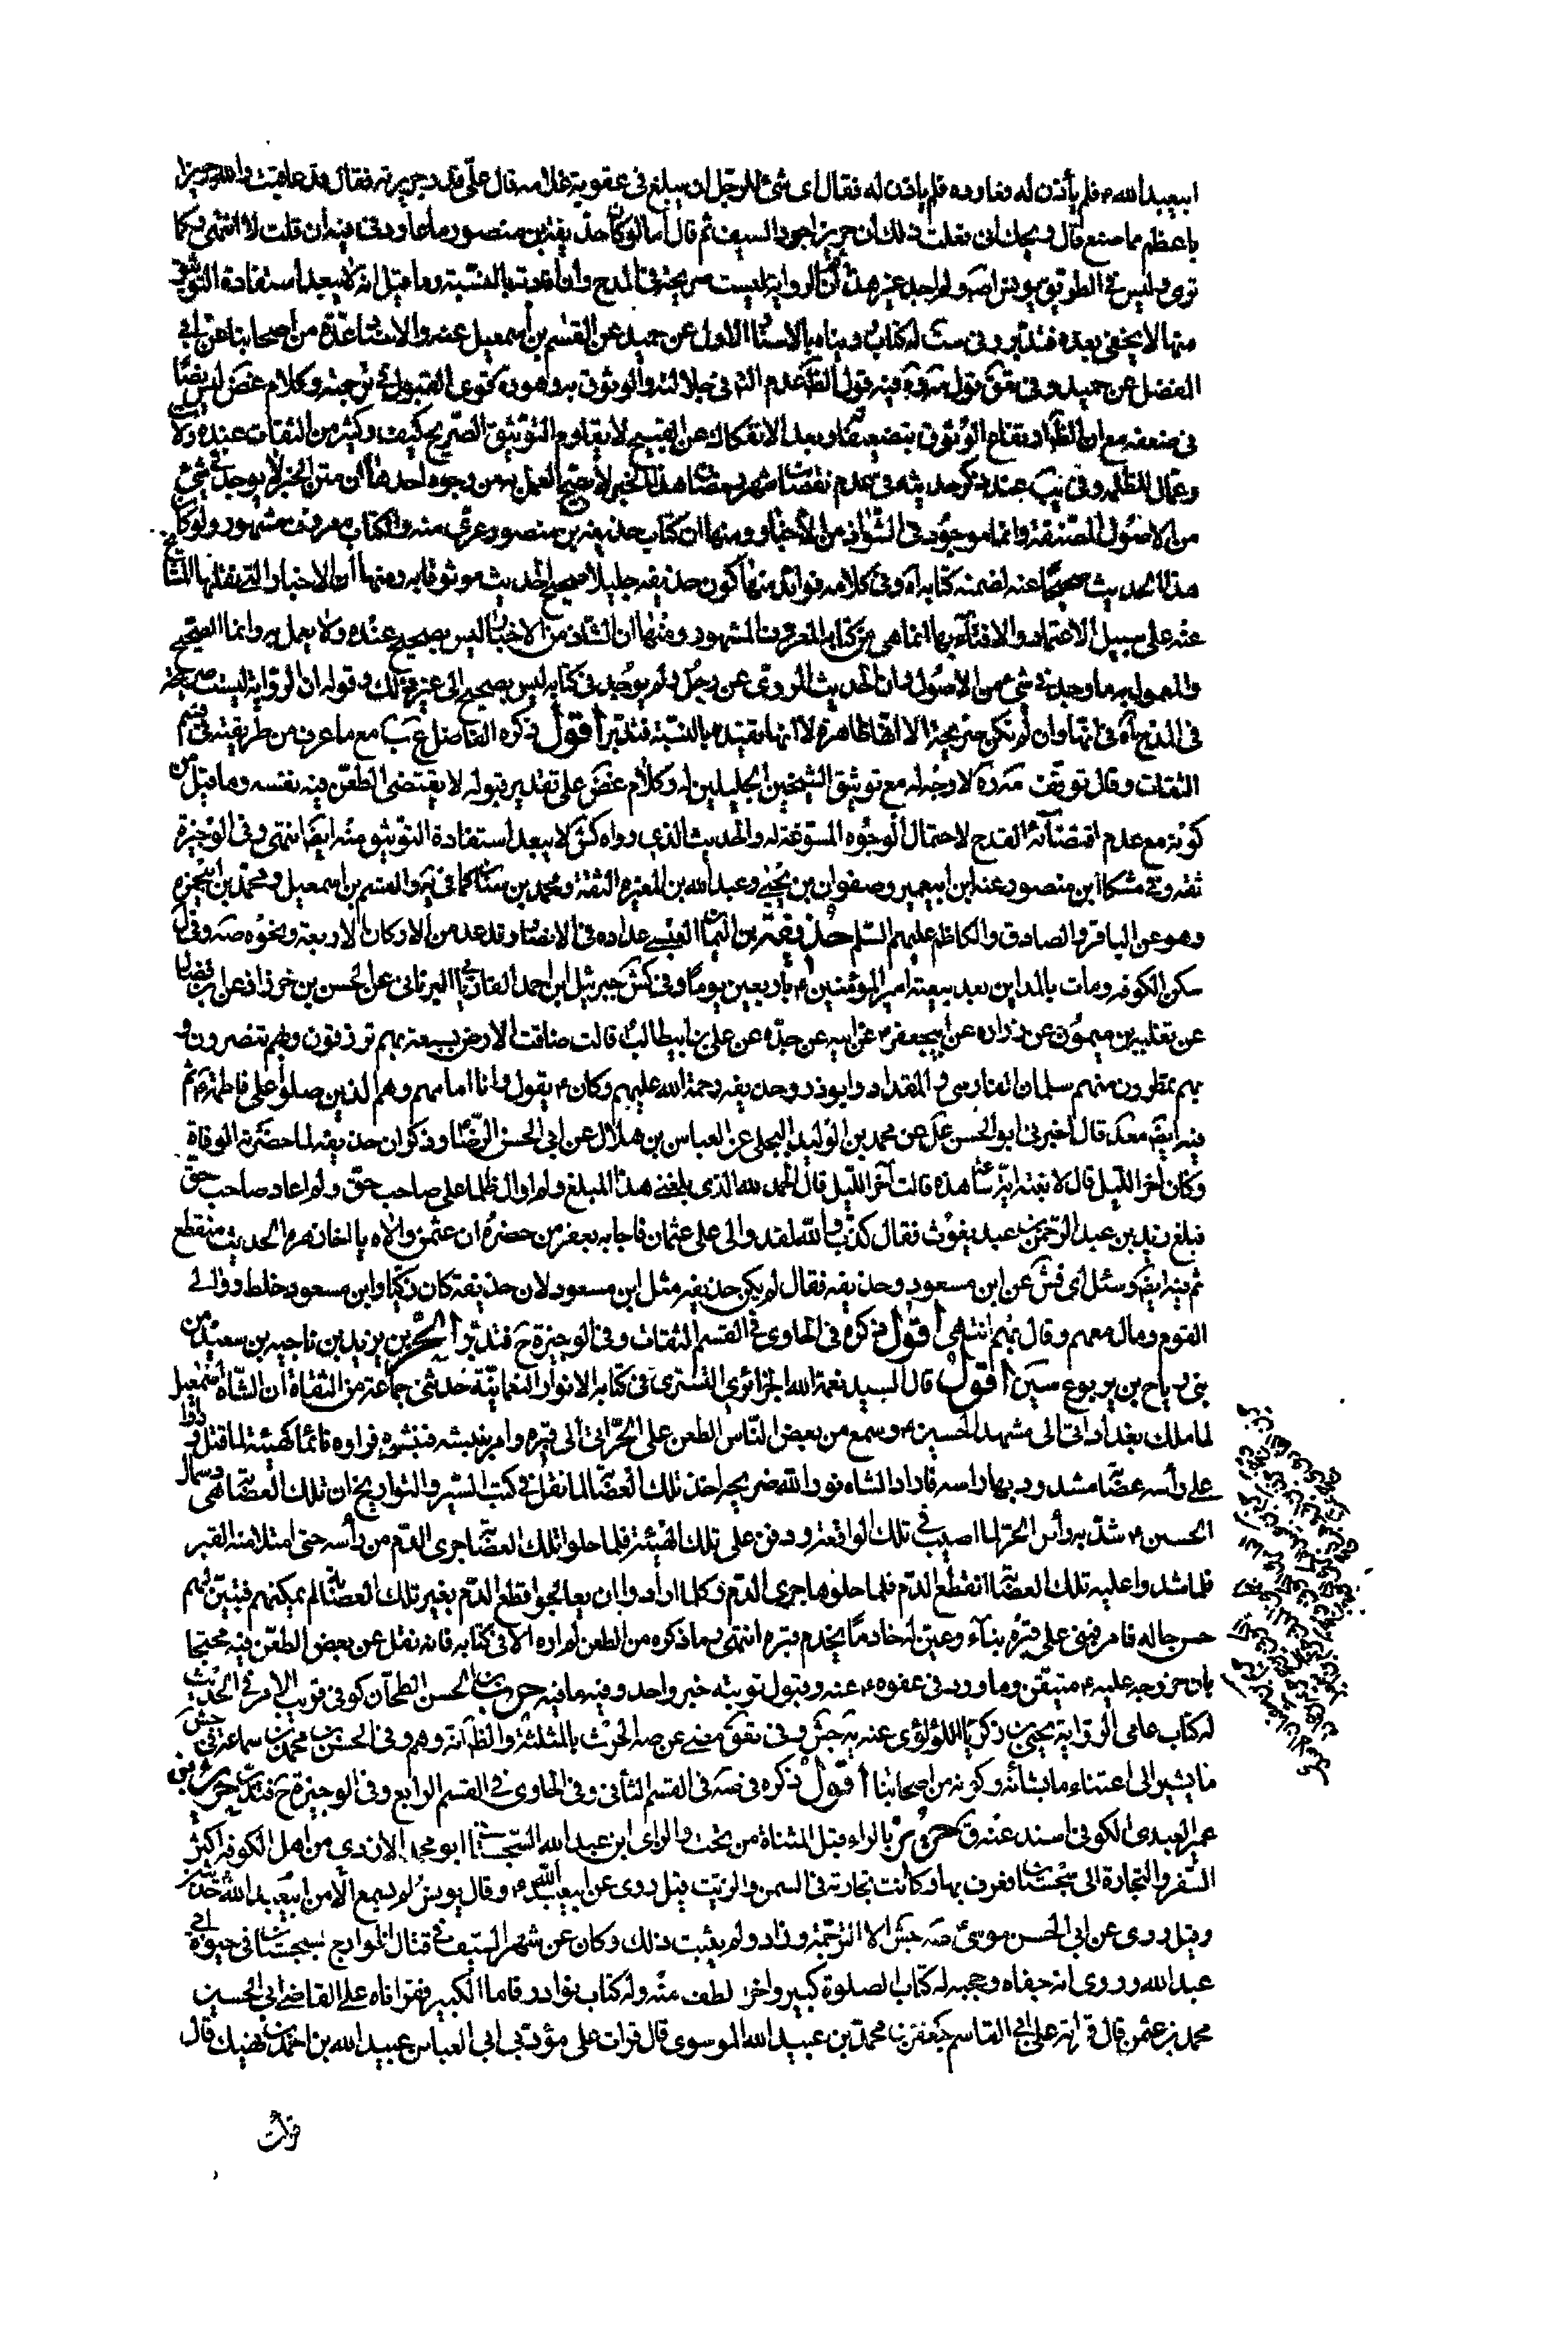 ابيعبد الله ع فلم يأذن له فعاوده فلم يأذن له فقال اى شئ للرجل ان يبلغ فى عقوبة غلامه قال على قدر جريرته فقال قد عاقبت والله حريزا
باعظم مما صنع قال ويحك انى فعلت ذلك ان حريزا جرد السيف ثم قال اما لو كان حذيفة بن منصور ما عاودنى فيه ان قلت لا انتهى وكما
ترى ليس فى الطريق يونس اصلا ولم اجد غير هذا ثم ان الرواية ليست صريحة فى المدح وان افادته بالنسبة وما قيل انه لا يبعد استفادة التوثيق
منها لا يخفى بعده فتدبر وفى ست له كتاب رويناه بالاسناد الاول عن حميد عن القسم بن اسمعيل عنه والاسناد عدة من اصحابنا عن ابى
المفضل عن حميد وفى تعق قول فيه قول الظ عدم التأمل فى جلالته والوثوق به وهو كقوى القبول ترجمته وكلام غض ليس نصا
فى ضعفه مع ان الظاهر ارتفاع الوثوق بتضعيفه وبعد الانفكاك عن القبيح لا يقاوم التوثيق الصريح كيف وكثير من الثقات عنده ولاة
وعمال للظلمة وفى يب عند ذكر حديثه فى عدم نقصان شهر رمضان هذا الخبر لا يصح العمل به من وجوه احدها ان متن الخبر لا يوجد فى شئ
من الاصول المصنفة وانما موجود فى الشواذ من الاخبار ومنها ان كتاب حذيفة بن منصور عرى منه والكتاب معروف مشهور ولو كان
هذا الحديث صحيحا عنه لضمنه كتابه اه وفى كلامه فوائد منها كون حذيفة جليلا صحيح الحديث موثوقا به ومنها ان الاخبار التى نقلها المشايخ
عنه على سبيل الاعتماد والافتاء بها انما هى من كتابه المعروف المشهور ومنها ان الشاذ من الاخبار ليس بصحيح عنده ولا يعمل به وانما الصحيح
والمعمول به ما وجد فى شئ من الاصول وان الحديث المروى عن رجل ولم يوجد فى كتابه ليس بصحيح الى غير ذلك وقوله ان الرواية ليست صريحة
فى المدح اه فى انها وان لم تكن صريحة الا انها ظاهرة لا انها تفيده بالنسبة فتدبر أقول ذكره الفاضل عب مع ما عرف من طريقته فى قسم
الثقات وقال توقف مه ره لا وجه له مع توثيق الشيخين الجليلين له وكلام غض على تقدير قبوله لا يقتضى الطعن فيه نفسه وما قيل من
كونه مع عدم اقتضائه القدح لاحتمال الوجوه المسوغة له والحديث الذى رواه كش لا يبعد استفادة التوثيق منه ايضا انتهى وفى الوجيزة
ثقة وفى مشكا ابن منصور عنه ابن ابيعمير وصفوان بن يحيى وعبد الله بن المغيرة الثقة ومحمد بن سنان كما فى يه والقسم بن اسمعيل ومحمد بن ابيحمزة
وهو عن الباقر والصادق والكاظم عليهم السلم حذيفة بن اليمان العبسى عداده فى الانصار وقد عد من الاركان الاربعة ونحوه صه وفى ل
سكن الكوفه ومات بالمداين بعد بيعة امير المؤمنين ع باربعين يوما وفى كش جبرئيل ابن احمد الفاريابى البرنانى عن الحسن بن خرزاذ عن ابن فضال
عن ثعلبة بن ميمون عن زراره عن ابيجعفر ع عن ابيه عن جده عن على بن ابيطالب قالت ضاقت الارض بسبعة بهم ترزقون وبهم تنصرون و
بهم تمطرون منهم سلمان الفارسى والمقداد وابوذر وحذيفه رحمة الله عليهم وكان ع يقول وانا امامهم وهم الذين صلوا على فاطمة ع ثم
فيه ايضا قال اخبرنى ابو الحسن على عن محمد بن الوليد البجلى عن العباس بن هلال عن ابى الحسن الرضا وذكر ان حذيفه لما حضرته الوفاة
وكان اخر الليل قال لابنته اية ساعة هذه قالت آخر الليل قال الحمد لله الذى بلغنى هذا المبلغ ولم اوال ظالما على صاحب حق ولم اعاد صاحب حق
فبلغ زيد بن عبد الرحمن بن عبد يغوث فقال كذب والله لقد والى على عثمان فاجابه بعض من حضره ان عثمن والاه يا اخا زهره الحديث منقطع
ثم فيه ايضا وسئل اى فش عن ابن مسعود وحذيفه فقال لم يكن حذيفه مثل ابن مسعود لان حذيفة كان زكيا وابن مسعود خلط ووالى
القوم ومال معهم وقال بهم انتهى أقول ذكره فى الحاوى فى القسم الثقات وفى الوجيزة ح فتدبر الحر بن يزيد بن ناجيه بن سعيد من
بنى رياح بن يربوع سين أقول قال السيد نعمة الله الجزائرى التسترى فى كتابه الانوار النعمانية حدثنى جماعة من الثقاة ان الشاه اسمعيل
لما ملك بغداد اتى الى مشهد الحسين ع وسمع من بعض الناس الطعن على الحر اتى الى قبره وامر بنبشه فنبشوه فراوه نائما كهيئته لما قتل وراوا
على رأسه عصابة مشدود بها راسه فاراد الشاه نور الله ضريحه اخذ تلك العصابة لما نقل فى كتب السير والتواريخ ان تلك العصابة هى دسمال
الحسين ع شد به رأس الحر لما اصيب فى تلك الواقعة ودفن على تلك الهيئة فلما حلوا تلك العصابة جرى الدم من رأسه حتى امتلا منه القبر
فلما شدوا عليه تلك العصابة انقطع الدم فلما حلوها جرى الدم وكلما ارادوا ان يعالجوا قطع الدم بغير تلك العصابة لم يمكنهم فتبين لهم
حسن حاله فامر فبنى على قبره بناء وعين له خادما يخدم قبره انتهى وما ذكره من الطعن لم اره الا فى كتابه فانه نقل عن بعض الطعن فيه محتجا
بان خروجه عليه ع متيقن وما ورد فى عفوه ع عنه وقبول توبته خبر واحد وفيه ما فيه حرب بن الحسن الطحان كوفى قريب الامر فى الحديث
له كتاب عامى الرواية يحيى بن زكريا اللؤلؤى عنه به جش وفى تعق مضى عن صه الحرث بالمثلثة والظ انه وهم وفى الحسن بن محمد بن سماعة فى جش
ما يشير الى اعتناء ما بشأنه وكونه من اصحابنا أقول ذكره فى صه فى القسم الثانى وفى الحاوى فى القسم الرابع وفى الوجيزة ح فتدبر حريث بن
عمير العبدى الكوفى اسند عنه ق حريز بالراء قبل المثناة من تحت والزاى ابن عبد الله السجستانى ابو محمد الازدى من اهل الكوفه اكثر
السفر والتجارة الى سجستان فعرف بها وكانت تجارته فى السمن والزيت قيل روى عن ابيعبد الله ع وقال يونس لم يسمع الا من ابيعبد الله ع حديثين
وقيل روى عن ابى الحسن موسى صه جش الا الترجمة وزاد ولم يثبت ذلك وكان عن شهر السيف فى قتال الخوارج بسجستان فى حيوة ابى
عبد الله وروى انه جفاه وحجبه له كتاب الصلوة كبير واخر الطف منه وله كتاب نوادر فاما الكبير فقراناه على القاضى ابى الحسين
محمد بن عثمن قال قراته على ابى القاسم جعفر بن محمد بن عبيد الله الموسوى قال قرات على مؤدبى ابى العباس عبيد الله بن احمد بن نهيك قال
قرأت